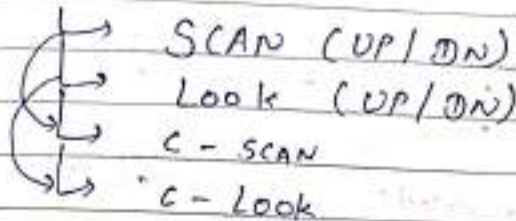 SCAN (UP/DN)
Look (UP/DN)
C - SCAN
C - Look